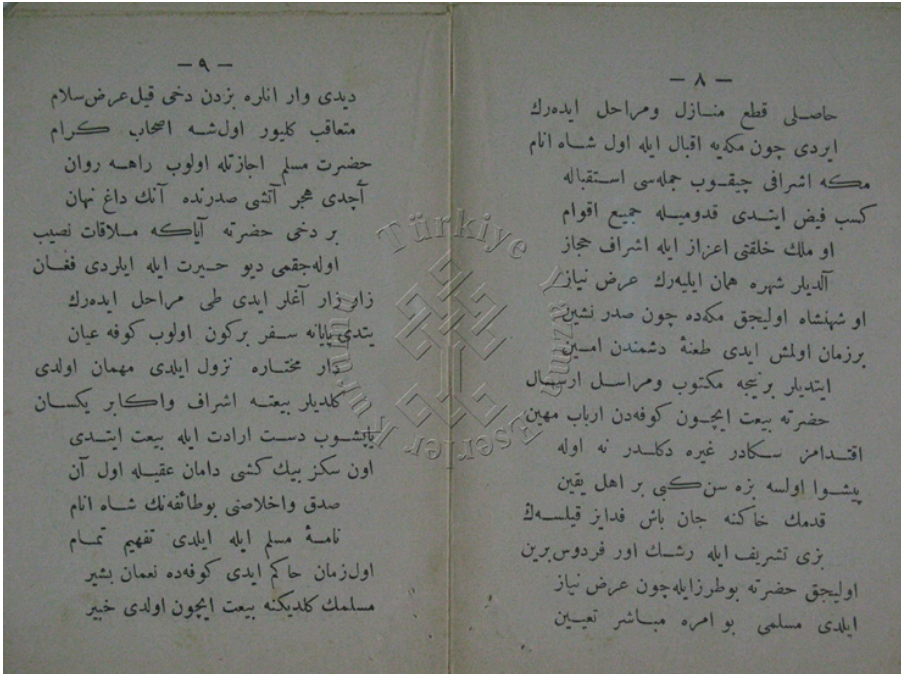 — ٨ —
حاصلی قطع منازل ومراحل ایده‌رك
ایردی چون مكه‌یه اقبال ایله اول شاه انام
مكه اشرافی چیقوب جمله‌سی استقباله
كسب فیض ایتدی قدومیله جمیع اقوام
او ملك خلقتی اعزاز ایله اشراف حجاز
آلدیلر شهره همان ایلیه‌رك عرض نیاز
او شهنشاه اولیجق مكه‌ده چون صدر نشین
برزمان اولمش ایدی طعنهٔ دشمندن امین
ایتدیلر برنیجه مكتوب ومراسل ارسال
حضرته بیعت ایچون كوفه‌دن ارباب مهین
اقتدامز سكادر غیره دكلدر نه اوله
پیشوا اولسه بزه سن كبی بر اهل یقین
قدمك خاكنه جان باش فدایز قیلسه‌ك
بزی تشریف ایله رشك اور فردوس برین
اولیجق حضرته بوطرزایله چون عرض نیاز
ایلدی مسلمی بو امره مباشر تعیین
— ٩ —
دیدی وار انلره بزدن دخی قیل عرض سلام
متعاقب كلیور اول شه اصحاب كرام
حضرت مسلم اجازتله اولوب راهه روان
آچدی هجر آتشی صدرنده آنك داغ نهان
بر دخی حضرته آیاكه ملاقات نصیب
اوله‌جقمی دیو حیرت ایله ایلردی فغان
زار زار آغلر ایدی طی مراحل ایده‌رك
یتدی پایانه سفر بركون اولوب كوفه عیان
دار مختاره نزول ایلدی مهمان اولدی
كلدیلر بیعته اشراف واكابر یكسان
یاپشوب دست ارادت ایله بیعت ایتدی
اون سكز بیك كشی دامان عقیله اول آن
صدق واخلاصنی بوطائفه‌نك شاه انام
نامهٔ مسلم ایله ایلدی تفهیم تمام
اول زمان حاكم ایدی كوفه‌ده نعمان بشیر
مسلمك كلدیكنه بیعت ایچون اولدی خبیر
Türkiye Yazma Eserler Kurumu